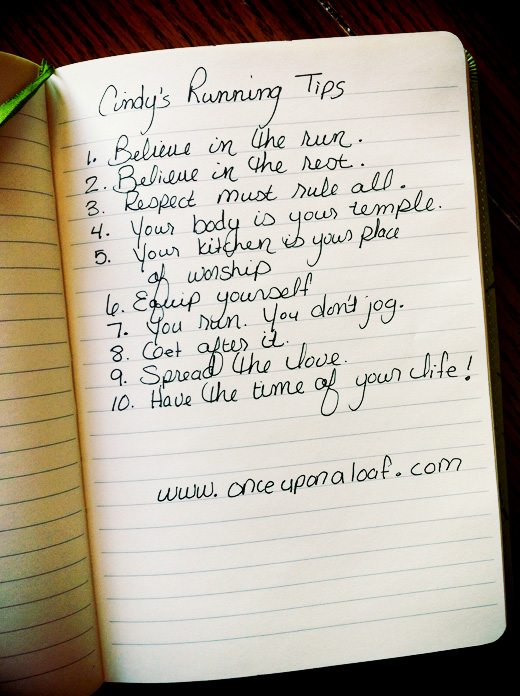 Cindy's Running Tips
1. Believe in the run.
2. Believe in the rest.
3. Respect must rule all.
4. Your body is your temple.
5. Your kitchen is your place
of worship
6. Equip yourself
7. You run. You don't jog.
8. Get after it.
9. Spread the love.
10. Have the time of your life!
www.onceuponaloaf.com